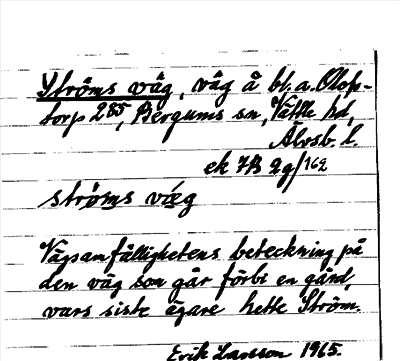 Ströms väg, väg å bl. a. Olofs-
torp 2 85, Bergums sn, Vättle hd,
Älvsb. l.
ek 7B 2g/162
strömsväg
Vägsamfällighetens beteckning på
den väg som går förbi en gård,
vars siste ägare hette Ström.
Erik Larsson 1965.